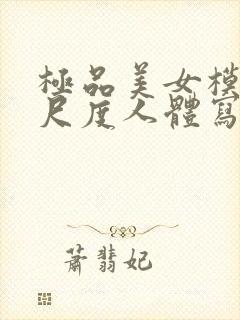 極品美女模
尺度人體寫
蕭翡妃